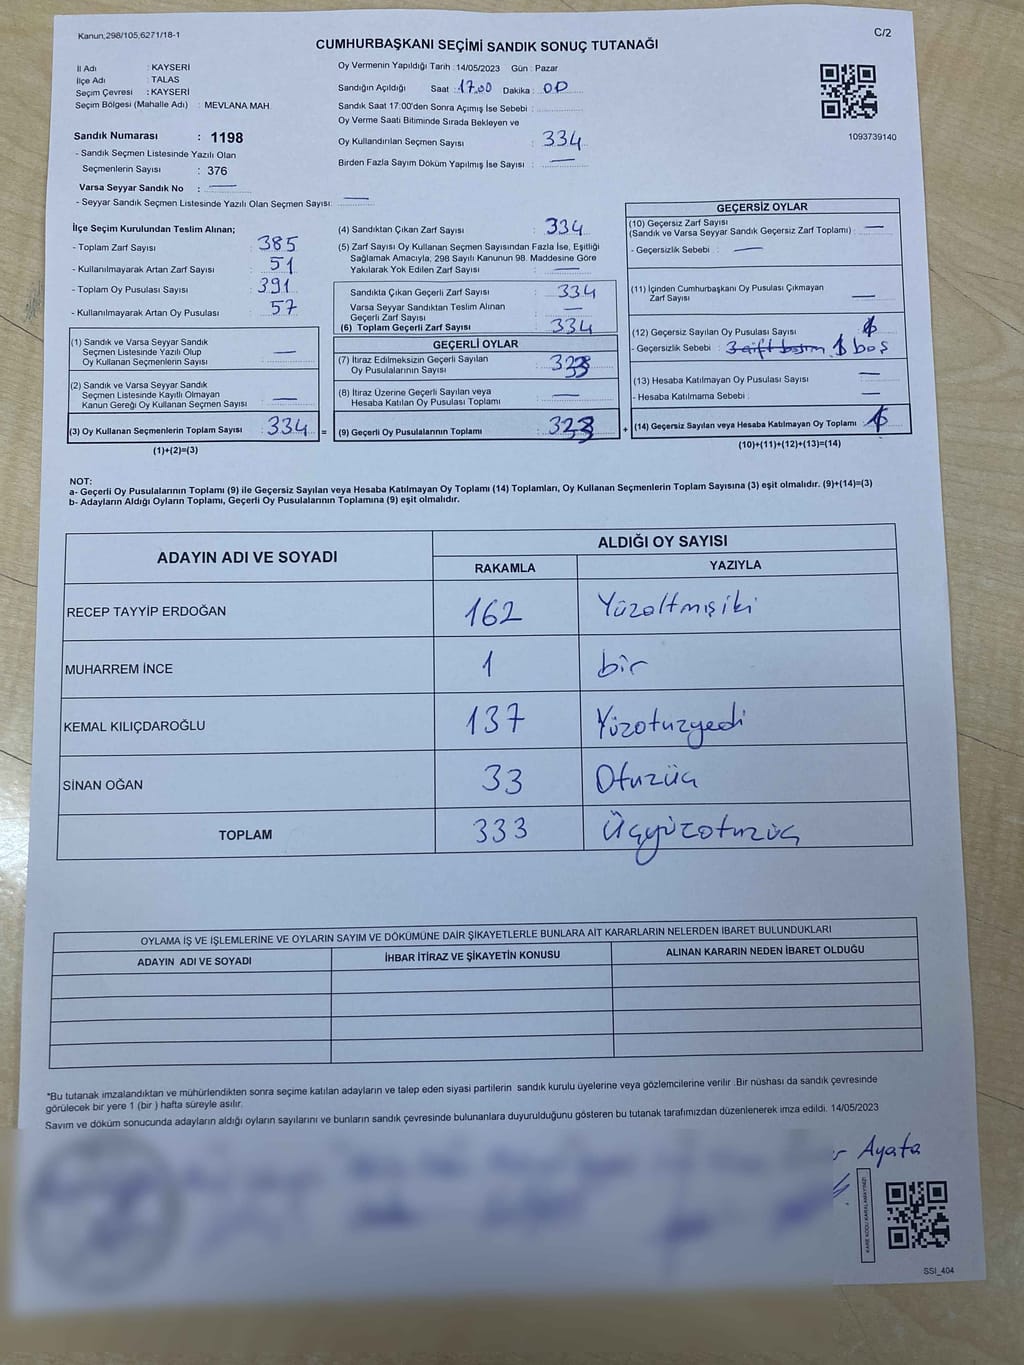 Kanun,298/105,6271/18-1
C/2
CUMHURBAŞKANI SEÇİMİ SANDIK SONUÇ TUTANAĞI
İl Adı : KAYSERİ
İlçe Adı : TALAS
Seçim Çevresi : KAYSERİ
Seçim Bölgesi (Mahalle Adı) : MEVLANA MAH.
Sandık Numarası : 1198
- Sandık Seçmen Listesinde Yazılı Olan
Seçmenlerin Sayısı : 376
Varsa Seyyar Sandık No : —
- Seyyar Sandık Seçmen Listesinde Yazılı Olan Seçmen Sayısı: —
Oy Vermenin Yapıldığı Tarih :14/05/2023 Gün : Pazar
Sandığın Açıldığı Saat :17.00 Dakika : 00
Sandık Saat 17:00'den Sonra Açımış İse Sebebi :
Oy Verme Saati Bitiminde Sırada Bekleyen ve
Oy Kullandırılan Seçmen Sayısı : 334
Birden Fazla Sayım Döküm Yapılmış İse Sayısı : —
1093739140
İlçe Seçim Kurulundan Teslim Alınan;
- Toplam Zarf Sayısı : 385
- Kullanılmayarak Artan Zarf Sayısı : 51
- Toplam Oy Pusulası Sayısı : 391
- Kullanılmayarak Artan Oy Pusulası : 57
(1) Sandık ve Varsa Seyyar Sandık
Seçmen Listesinde Yazılı Olup
Oy Kullanan Seçmenlerin Sayısı : —
(2) Sandık ve Varsa Seyyar Sandık
Seçmen Listesinde Kayıtlı Olmayan
Kanun Gereği Oy Kullanan Seçmen Sayısı : —
(3) Oy Kullanan Seçmenlerin Toplam Sayısı : 334 =
(1)+(2)=(3)
(4) Sandıktan Çıkan Zarf Sayısı : 334
(5) Zarf Sayısı Oy Kullanan Seçmen Sayısından Fazla İse, Eşitliği
Sağlamak Amacıyla, 298 Sayılı Kanunun 98. Maddesine Göre
Yakılarak Yok Edilen Zarf Sayısı : —
Sandıkta Çıkan Geçerli Zarf Sayısı : 334
Varsa Seyyar Sandıktan Teslim Alınan
Geçerli Zarf Sayısı : —
(6) Toplam Geçerli Zarf Sayısı : 334
GEÇERLİ OYLAR
(7) İtiraz Edilmeksizin Geçerli Sayılan
Oy Pusulalarının Sayısı : 333
(8) İtiraz Üzerine Geçerli Sayılan veya
Hesaba Katılan Oy Pusulası Toplamı : —
(9) Geçerli Oy Pusulalarının Toplamı : 333 +
GEÇERSİZ OYLAR
(10) Geçersiz Zarf Sayısı
(Sandık ve Varsa Seyyar Sandık Geçersiz Zarf Toplamı) : —
- Geçersizlik Sebebi : —
(11) İçinden Cumhurbaşkanı Oy Pusulası Çıkmayan
Zarf Sayısı : —
(12) Geçersiz Sayılan Oy Pusulası Sayısı : 1
- Geçersizlik Sebebi : 1 boş
(13) Hesaba Katılmayan Oy Pusulası Sayısı : —
- Hesaba Katılmama Sebebi : —
(14) Geçersiz Sayılan veya Hesaba Katılmayan Oy Toplamı : 1
(10)+(11)+(12)+(13)=(14)
NOT:
a- Geçerli Oy Pusulalarının Toplamı (9) ile Geçersiz Sayılan veya Hesaba Katılmayan Oy Toplamı (14) Toplamları, Oy Kullanan Seçmenlerin Toplam Sayısına (3) eşit olmalıdır. (9)+(14)=(3)
b- Adayların Aldığı Oyların Toplamı, Geçerli Oy Pusulalarının Toplamına (9) eşit olmalıdır.
ADAYIN ADI VE SOYADI
ALDIĞI OY SAYISI
RAKAMLA YAZIYLA
RECEP TAYYİP ERDOĞAN 162 Yüzaltmışiki
MUHARREM İNCE 1 bir
KEMAL KILIÇDAROĞLU 137 Yüzotuzyedi
SİNAN OĞAN 33 Otuzüç
TOPLAM 333 Üçyüzotuzüç
OYLAMA İŞ VE İŞLEMLERİNE VE OYLARIN SAYIM VE DÖKÜMÜNE DAİR ŞİKAYETLERLE BUNLARA AİT KARARLARIN NELERDEN İBARET BULUNDUKLARI
ADAYIN ADI VE SOYADI İHBAR İTİRAZ VE ŞİKAYETİN KONUSU ALINAN KARARIN NEDEN İBARET OLDUĞU
*Bu tutanak imzalandıktan ve mühürlendikten sonra seçime katılan adayların ve talep eden siyasi partilerin sandık kurulu üyelerine veya gözlemcilerine verilir .Bir nüshası da sandık çevresinde
görülecek bir yere 1 (bir ) hafta süreyle asılır.
Sayım ve döküm sonucunda adayların aldığı oyların sayılarını ve bunların sandık çevresinde bulunanlara duyurulduğunu gösteren bu tutanak tarafımızdan düzenlenerek imza edildi. 14/05/2023
Ayata
KARE KODU KARALAMAYINIZ!
SSI_404